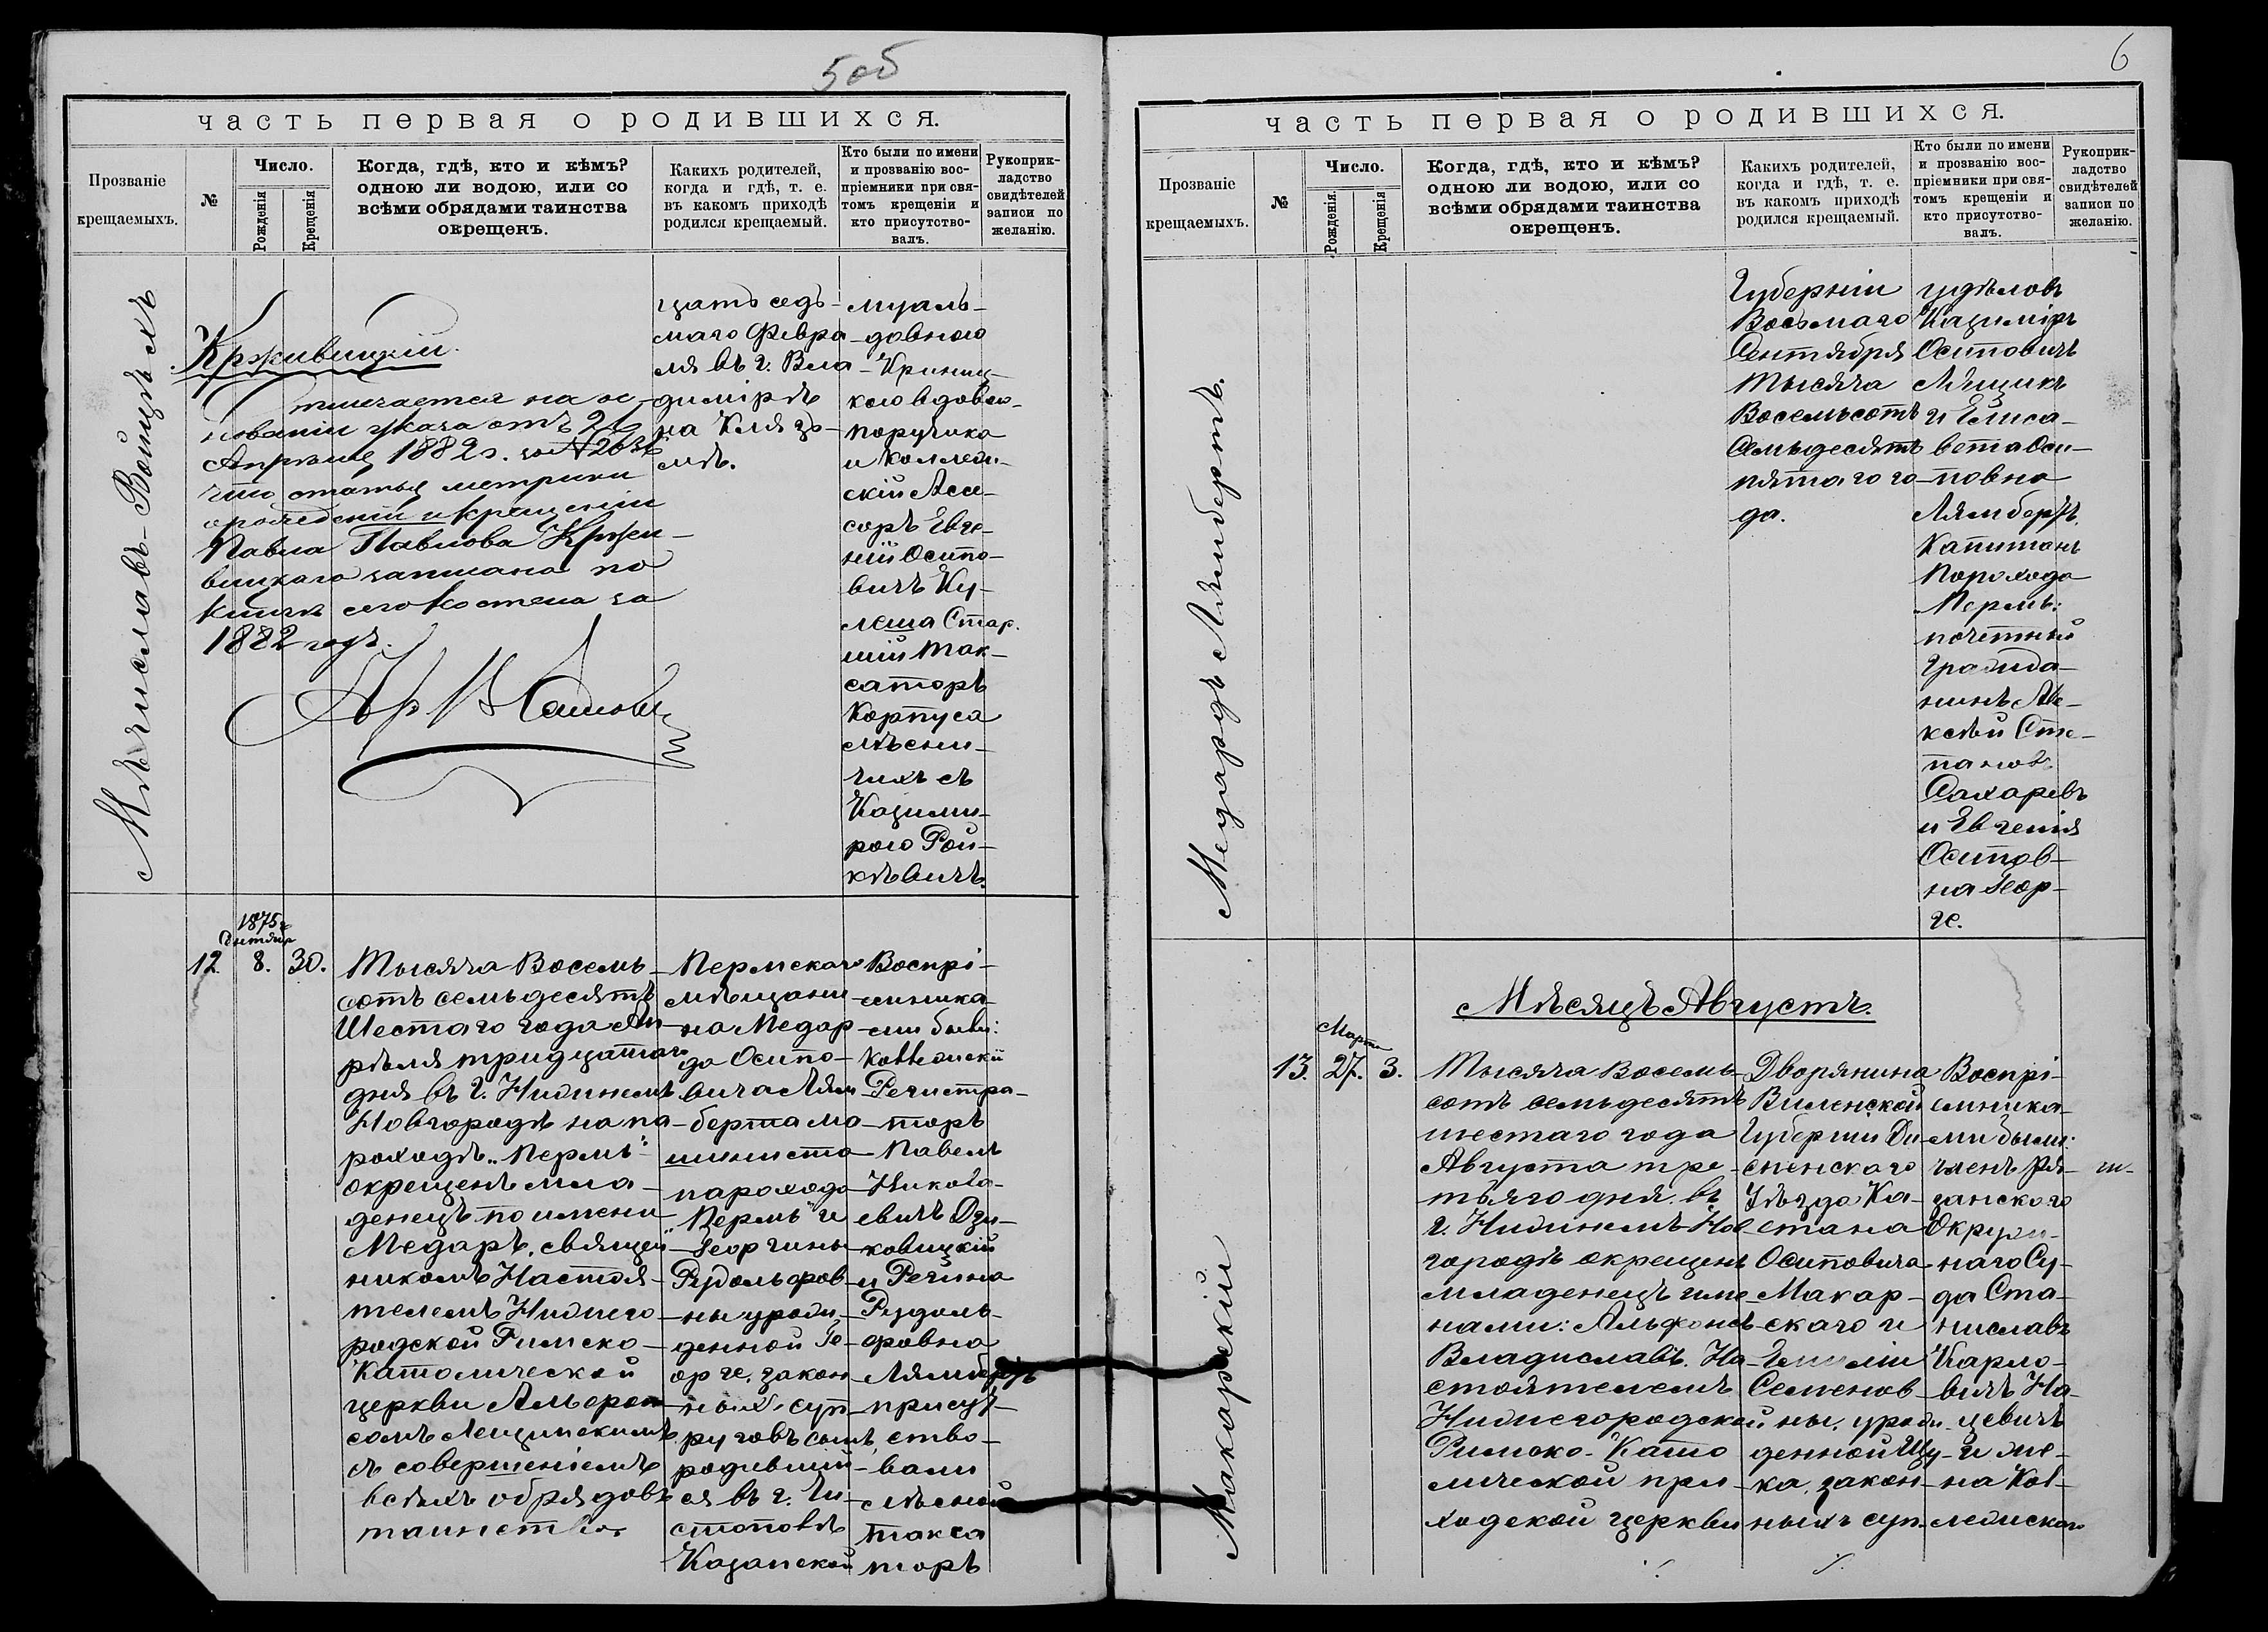 5об
часть первая о родившихся.
Прозваніе
крещаемыхъ.
№
Число.
Рожденія
Крещенія
Когда, гдѣ, кто и кѣмъ?
одною ли водою, или со
всѣми обрядами таинства
окрещенъ.
Какихъ родителей,
когда и гдѣ, т. е.
въ какомъ приходѣ
родился крещаемый.
Кто были по имени
и прозванію вос-
пріемники при свя-
томъ крещеніи и
кто присутство-
валъ.
Рукоприк-
ладство
свидѣтелей
записи по
желанію.
Мѣчиславъ-Войцѣхъ
Крживицкій.
Отмечается на ос-
нованіи указа отъ 26
Апрѣля 1882 г. за № 2638
что статья метрики
о рожденіи и крещеніи
Павла Павлова Кржи-
вицкаго записана по
книгѣ сего костела за
1882 годъ.
цать седь-
маго Февра-
ля въ г. Вла-
димірѣ
на Клязь-
мѣ.
муаль-
довною
Криниц-
кою вдовою
поручика
и Коллеж-
скій Асе-
соръ Евге-
ній Осипо-
вичъ Ку-
леша Стар-
шій так-
саторъ
Корпуса
лѣсни-
чихъ съ
Казими-
рою Рой-
кѣвичъ.
12.
1875 г.
Сентября
8.
30.
Тысяча Восемь-
сотъ семьдесятъ
Шестаго года Ап-
рѣля тридцатаго
дня въ г. Нижнемъ
Новгородѣ на па-
роходѣ „Пермь"
окрещенъ мла-
денецъ по имени
Медаръ, священ-
никомъ Настоя-
телемъ Нижего-
родской Римско-
Католической
церкви Альфон-
сомъ Лещинскимъ
съ совершеніемъ
всѣхъ обрядовъ
таинства
Пермскаго
мѣщани-
на Медар-
да Осипо-
вича Лям-
берта ма-
шиниста
парохода
„Пермь" и
Георгины
Рудольфов-
ны урож-
денной Ге-
орге, закон-
ныхъ суп-
руговъ сынъ,
родивший-
ся въ г. Чи-
стополѣ
Казанской
Воспрі-
емника-
ми были:
Коллежскій
Регистра-
торъ
Павелъ
Никола-
евичъ Дзи-
ковицкій
и Регина
Рудоль-
фовна
Лямбертъ
присут-
ство-
вали
лѣсной
такса-
торъ
6
часть первая о родившихся.
Прозваніе
крещаемыхъ.
№
Число.
Рожденія
Крещенія
Когда, гдѣ, кто и кѣмъ?
одною ли водою, или со
всѣми обрядами таинства
окрещенъ.
Какихъ родителей,
когда и гдѣ, т. е.
въ какомъ приходѣ
родился крещаемый.
Кто были по имени
и прозванію вос-
пріемники при свя-
томъ крещеніи и
кто присутство-
валъ.
Рукоприк-
ладство
свидѣтелей
записи по
желанію.
Медардъ Лямбертъ.
Губерніи
Восьмаго
Сентября
тысяча
Восемьсотъ
Семьдесятъ
пятаго го-
да.
удѣловъ
Казиміръ
Осиповичъ
Лящикъ
и Елиса-
вета Оси-
повна
Лямбертъ.
Капитанъ
Парохода
Пермь:
почетный
Гражда-
нинъ Але-
ксѣй Сте-
пановъ
Сахаревъ
и Евгенія
Осипов-
на Геор-
ге.
Мѣсяцъ Августъ.
Макарскій
13.
Марта
27.
3.
Тысяча Восемь-
сотъ семьдесятъ
шестаго года
Августа тре-
тьяго дня въ
г. Нижнемъ Нов-
городѣ окрещенъ
младенецъ име-
нами: Альфонсъ
Владиславъ. На-
стоятелемъ
Нижегородской
Римско-Като-
лической при-
ходской церкви
Дворянина
Виленской
Губерніи Ди-
сненскаго
Уѣзда Ка-
етана
Осиповича
Макар-
скаго и
Емиліи
Семенов-
ны, урож-
денной Щу-
ка, закон-
ныхъ суп-
Воспрі-
емника-
ми были:
членъ Ря-
занскаго
Окруж-
наго Су-
да Ста-
ниславъ
Карло-
вичъ На-
цевичъ
и же-
на Кол-
лежскаго